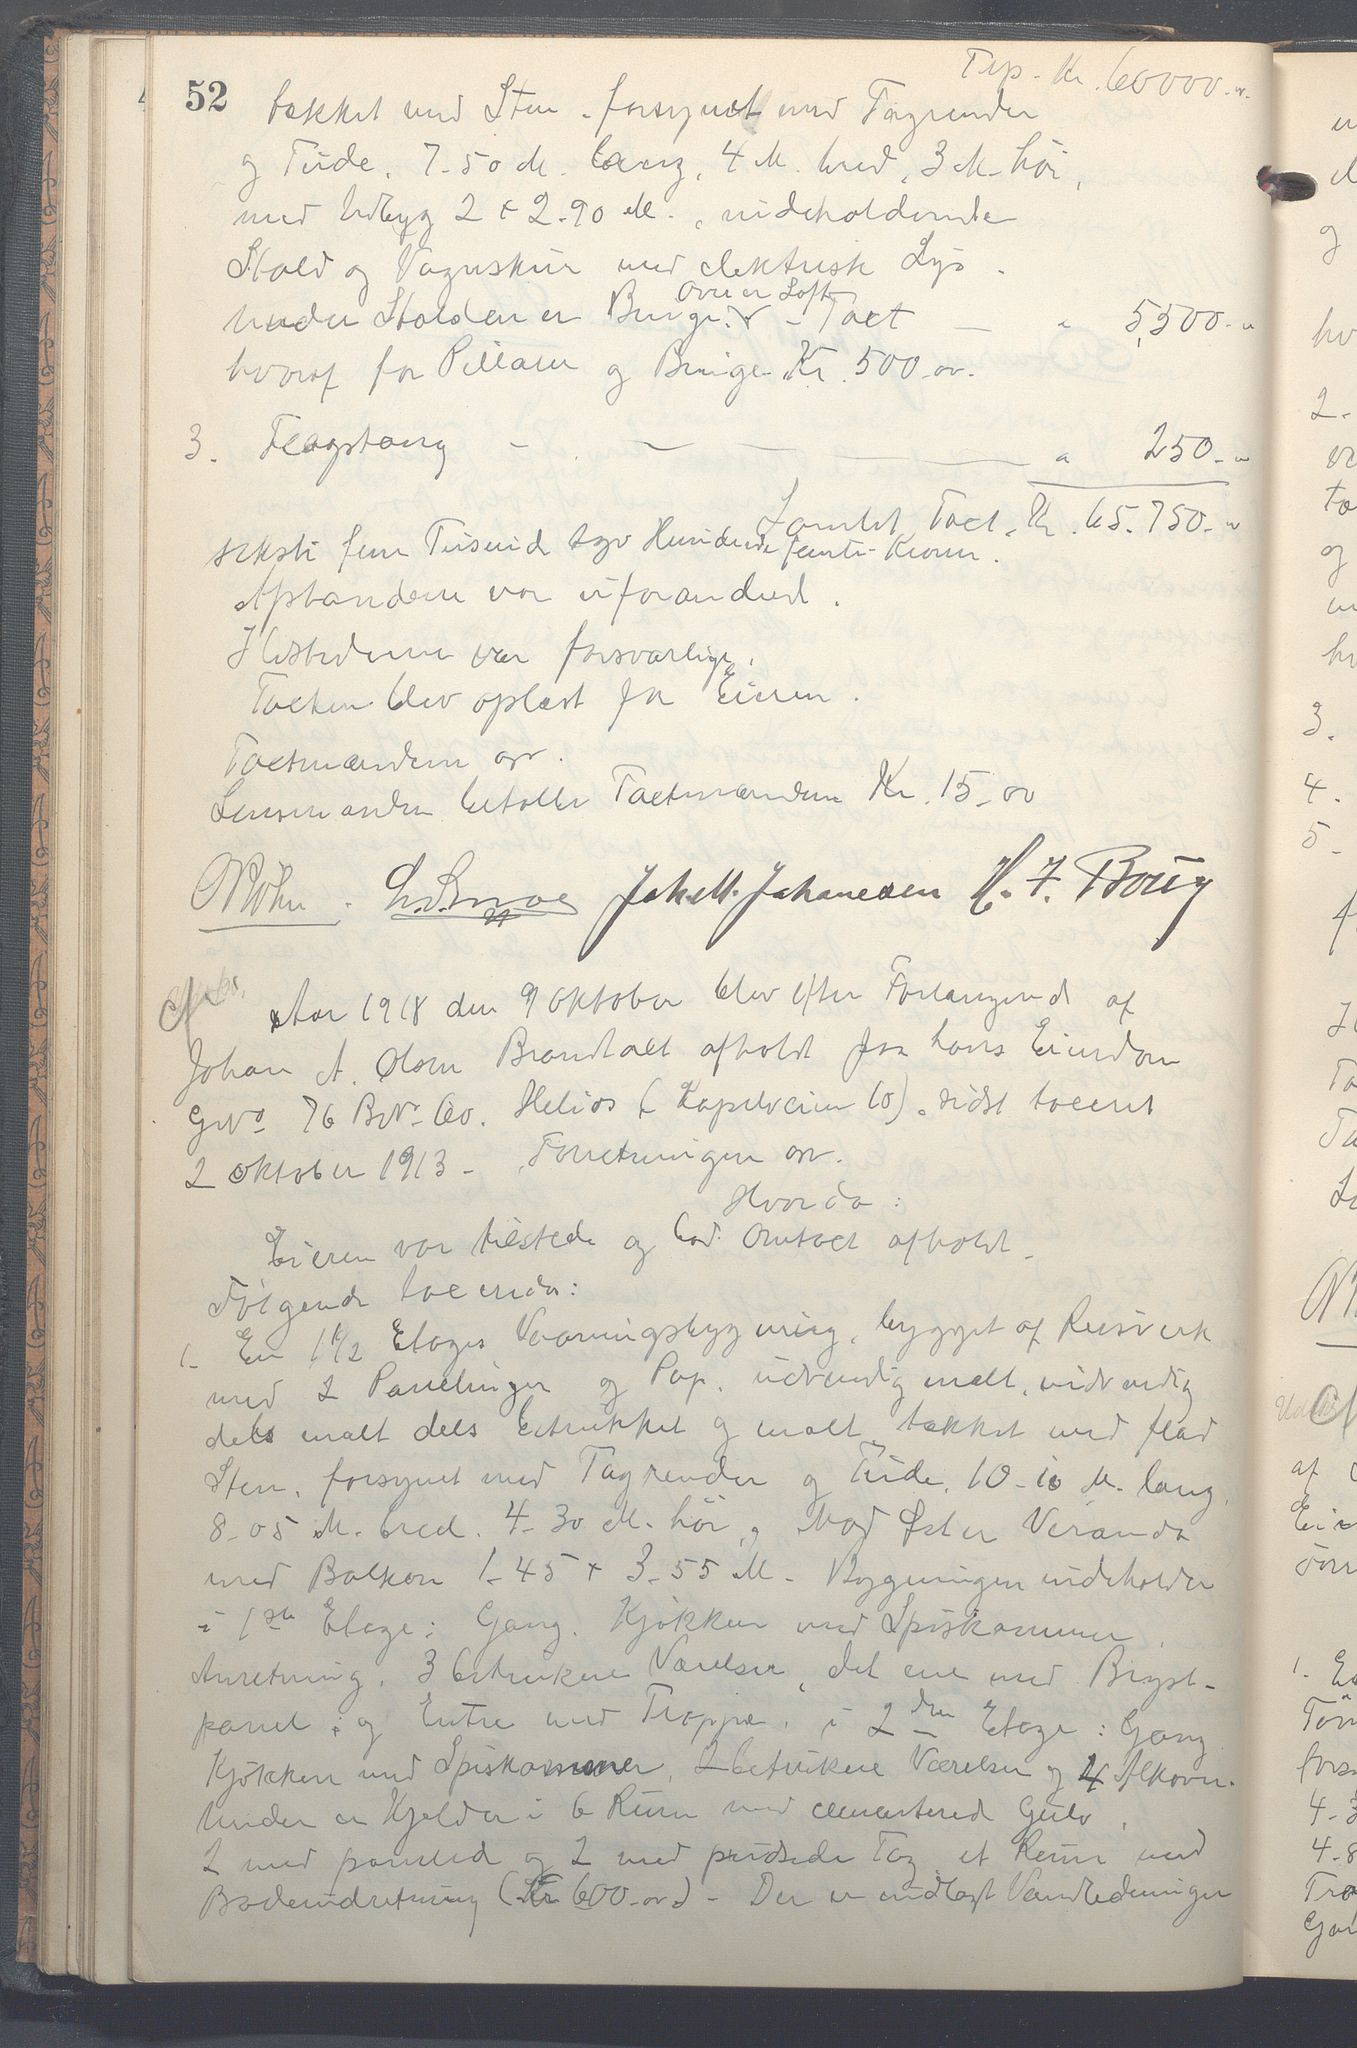 52
Trp. Kr. 60000.-
tækket med Sten, forsynet med Tagrender
og Tude, 7-50 M. lang, 4 M. bred, 3 M. høi,
med Udbyg 2 + 2-90 M., indeholdende
Stald og Vognskur med elektrisk Lys.
Over er Loft
Under Stalden er Binge. - Taxt — " 5,500.-
hvoraf for Pillarer og Binge Kr. 500.00.
3. Flagstang — — — " 250.-
Samlet Taxt. Kr. 65.750.-
seksti fem Tusind syv Hundrede femti Kroner.
Afstandene var uforandred.
Ildstederne var forsvarlige.
Taxten blev oplæst for Eieren.
Taxtmændene osv.
Lensmanden betalte Taxtmændene Kr. 15.00
Jak. M. Johanesen H. F. Borig
Aar 1918 den 9 Oktober blev efter Forlangende af
Johan A. Olsen Brandtaxt afholdt paa hans Eiendom
GNo 76 BNo 60. Helios (Kapelveien 10). sidst taxeret
2 Oktober 1913 - Forretningen osv.
Hvorda:
Eieren var tilstede og bad Omtaxt afholdt.
Følgende taxeredes:
1. En 1 1/2 Etages Vaaningsbygning, bygget af Reisverk
med 2 Panelinger og Pap, udvendig malt, indvendig
dels malt dels betrukket og malt, tækket med flad
Sten, forsynet med Tagrender og Tude, 10-10 M. lang,
8-05 M. bred. 4-30 M. høi, Mod Øst er Veranda
med Balkon 1-45 + 3-55 M. Bygningen indeholder
i 1ste Etage: Gang, Kjøkken med Spiskammer,
Anretning, 3 betrukene Værelser, det ene med Bryst-
panel; og Entre med Trappe, i 2den Etage: Gang
Kjøkken med Spiskammer, 2 betrukene Værelser og 4 Alkover.
Under er Kjelder i 6 Rum med cementered Gulv,
2 med paneled og 2 med pudsede Tag et Rum med
Badeindretning (Kr 600.00) - Der er indlagt Vandledninger